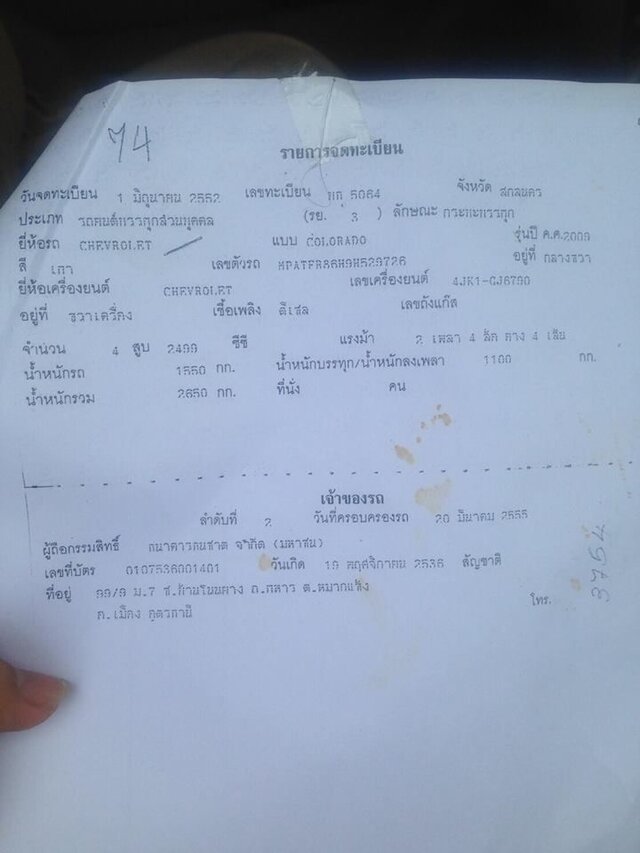 74
รายการจดทะเบียน
วันจดทะเบียน 1 มิถุนายน 2552 เลขทะเบียน 5064 จังหวัด สกลนคร
ประเภท รถยนต์บรรทุกส่วนบุคคล (รย. 3 ) ลักษณะ กระบะบรรทุก
ยี่ห้อรถ CHEVROLET แบบ COLORADO รุ่นปี ค.ศ.2009
สี เทา เลขตัวรถ MPATFR86H9H529726 อยู่ที่ กลางขวา
ยี่ห้อเครื่องยนต์ CHEVROLET เลขเครื่องยนต์ 4JK1-GJ6790
อยู่ที่ ขวาเครื่อง เชื้อเพลิง ดีเซล เลขถังแก๊ส
จำนวน 4 สูบ 2499 ซีซี แรงม้า 2 เพลา 4 ล้อ ยาง 4 เส้น
น้ำหนักรถ 1550 กก. น้ำหนักบรรทุก/น้ำหนักลงเพลา 1100 กก.
น้ำหนักรวม 2650 กก. ที่นั่ง คน
เจ้าของรถ
ลำดับที่ 2 วันที่ครอบครองรถ 20 มีนาคม 2555
ผู้ถือกรรมสิทธิ์ ธนาคารธนชาต จำกัด (มหาชน)
เลขที่บัตร 0107536001401 วันเกิด 19 พฤศจิกายน 2536 สัญชาติ
ที่อยู่ 99/9 ม.7 ซ.บ้านโนนยาง ถ.ทหาร ต.หมากแข้ง โทร.
อ.เมือง อุดรธานี
3754